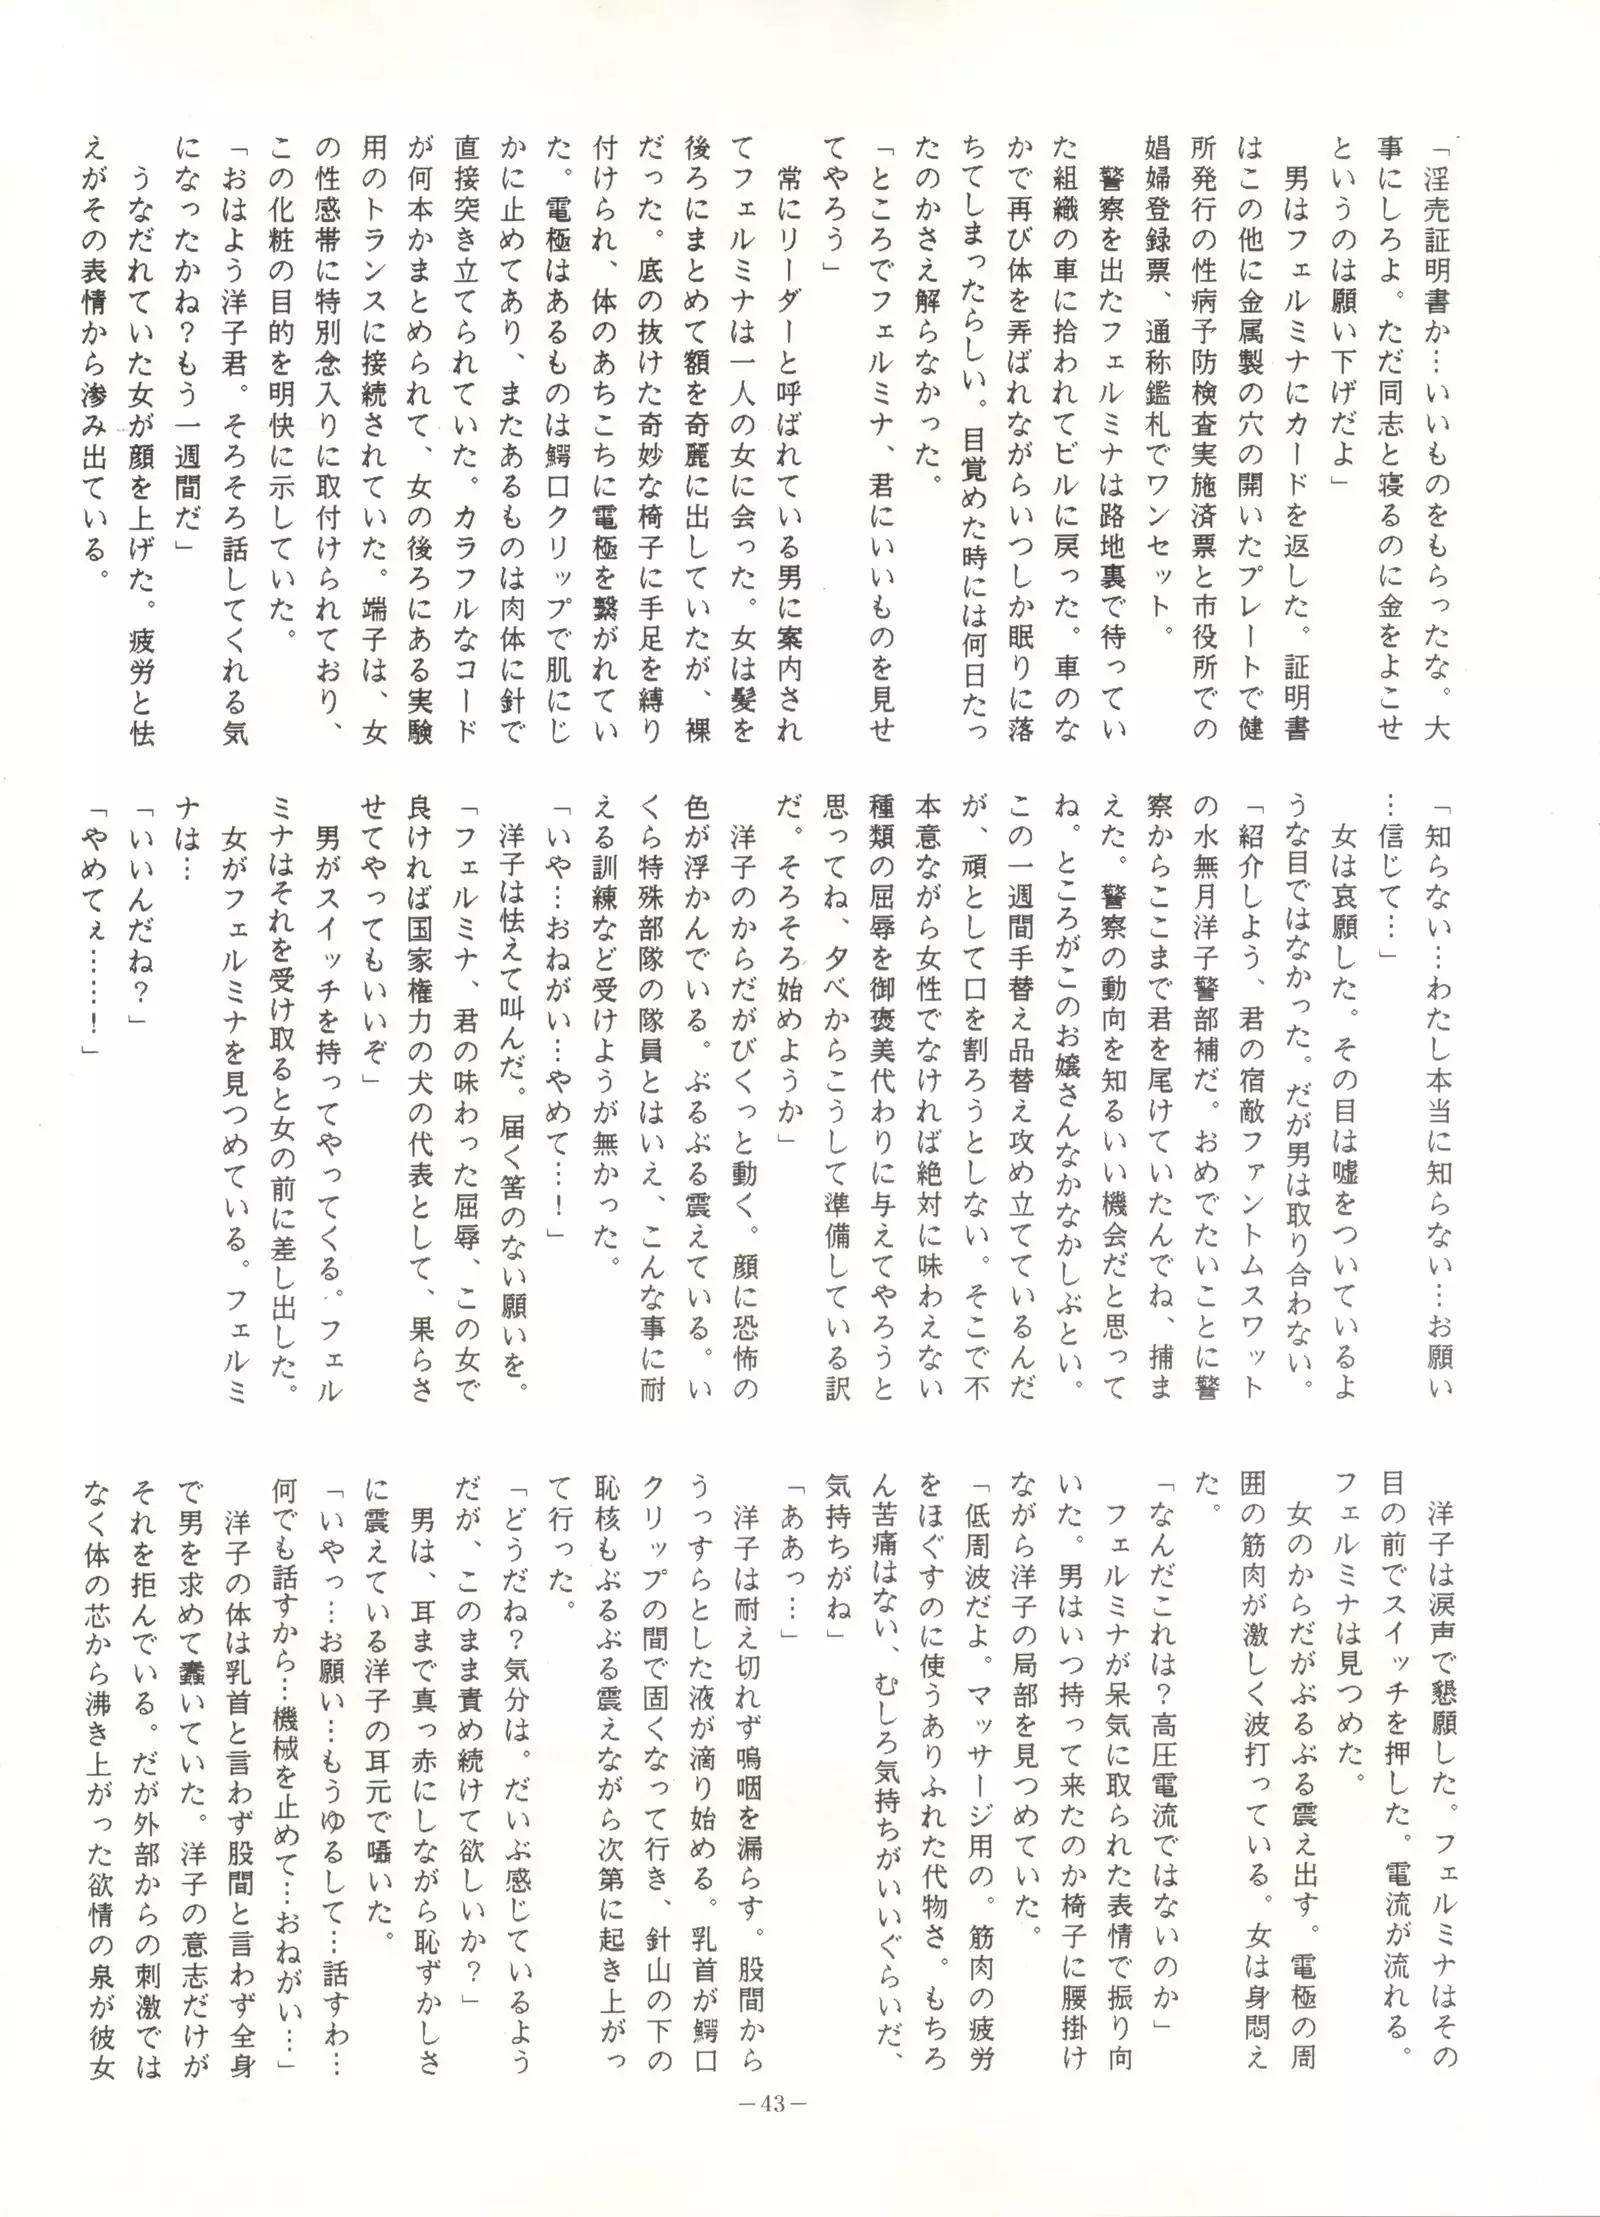 「淫売証明書か…いいものをもらったな。大
事にしろよ。ただ同志と寝るのに金をよこせ
というのは願い下げだよ」
男はフェルミナにカードを返した。証明書
はこの他に金属製の穴の開いたプレートで健
所発行の性病予防検査実施済票と市役所での
娼婦登録票、通称鑑札でワンセット。
警察を出たフェルミナは路地裏で待ってい
た組織の車に拾われてビルに戻った。車のな
かで再び体を弄ばれながらいつしか眠りに落
ちてしまったらしい。目覚めた時には何日たっ
たのかさえ解らなかった。
「ところでフェルミナ、君にいいものを見せ
てやろう」
常にリーダーと呼ばれている男に案内され
てフェルミナは一人の女に会った。女は髪を
後ろにまとめて額を奇麗に出していたが、裸
だった。底の抜けた奇妙な椅子に手足を縛り
付けられ、体のあちこちに電極を繋がれてい
た。電極はあるものは鰐口クリップで肌にじ
かに止めてあり、またあるものは肉体に針で
直接突き立てられていた。カラフルなコード
が何本かまとめられて、女の後ろにある実験
用のトランスに接続されていた。端子は、女
の性感帯に特別念入りに取付けられており、
この化粧の目的を明快に示していた。
「おはよう洋子君。そろそろ話してくれる気
になったかね？もう一週間だ」
うなだれていた女が顔を上げた。疲労と怯
えがその表情から滲み出ている。
「知らない…わたし本当に知らない…お願い
…信じて…」
女は哀願した。その目は嘘をついているよ
うな目ではなかった。だが男は取り合わない。
「紹介しよう、君の宿敵ファントムスワット
の水無月洋子警部補だ。おめでたいことに警
察からここまで君を尾けていたんでね、捕ま
えた。警察の動向を知るいい機会だと思って
ね。ところがこのお嬢さんなかなかしぶとい。
この一週間手替え品替え攻め立てているんだ
が、頑として口を割ろうとしない。そこで不
本意ながら女性でなければ絶対に味わえない
種類の屈辱を御褒美代わりに与えてやろうと
思ってね、夕べからこうして準備している訳
だ。そろそろ始めようか」
洋子のからだがびくっと動く。顔に恐怖の
色が浮かんでいる。ぶるぶる震えている。い
くら特殊部隊の隊員とはいえ、こんな事に耐
える訓練など受けようが無かった。
「いや…おねがい…やめて…！」
洋子は怯えて叫んだ。届く筈のない願いを。
「フェルミナ、君の味わった屈辱、この女で
良ければ国家権力の犬の代表として、果らさ
せてやってもいいぞ」
男がスイッチを持ってやってくる。フェル
ミナはそれを受け取ると女の前に差し出した。
女がフェルミナを見つめている。フェルミ
ナは…
「いいんだね？」
「やめてぇ……！」
洋子は涙声で懇願した。フェルミナはその
目の前でスイッチを押した。電流が流れる。
フェルミナは見つめた。
女のからだがぶるぶる震え出す。電極の周
囲の筋肉が激しく波打っている。女は身悶え
た。
「なんだこれは？高圧電流ではないのか」
フェルミナが呆気に取られた表情で振り向
いた。男はいつ持って来たのか椅子に腰掛け
ながら洋子の局部を見つめていた。
「低周波だよ。マッサージ用の。筋肉の疲労
をほぐすのに使うありふれた代物さ。もちろ
ん苦痛はない、むしろ気持ちがいいぐらいだ、
気持ちがね」
「ああっ…」
洋子は耐え切れず嗚咽を漏らす。股間から
うっすらとした液が滴り始める。乳首が鰐口
クリップの間で固くなって行き、針山の下の
恥核もぶるぶる震えながら次第に起き上がっ
て行った。
「どうだね？気分は。だいぶ感じているよう
だが、このまま責め続けて欲しいか？」
男は、耳まで真っ赤にしながら恥ずかしさ
に震えている洋子の耳元で囁いた。
「いやっ…お願い…もうゆるして…話すわ…
何でも話すから…機械を止めて…おねがい…」
洋子の体は乳首と言わず股間と言わず全身
で男を求めて蠢いていた。洋子の意志だけが
それを拒んでいる。だが外部からの刺激では
なく体の芯から沸き上がった欲情の泉が彼女
－43－